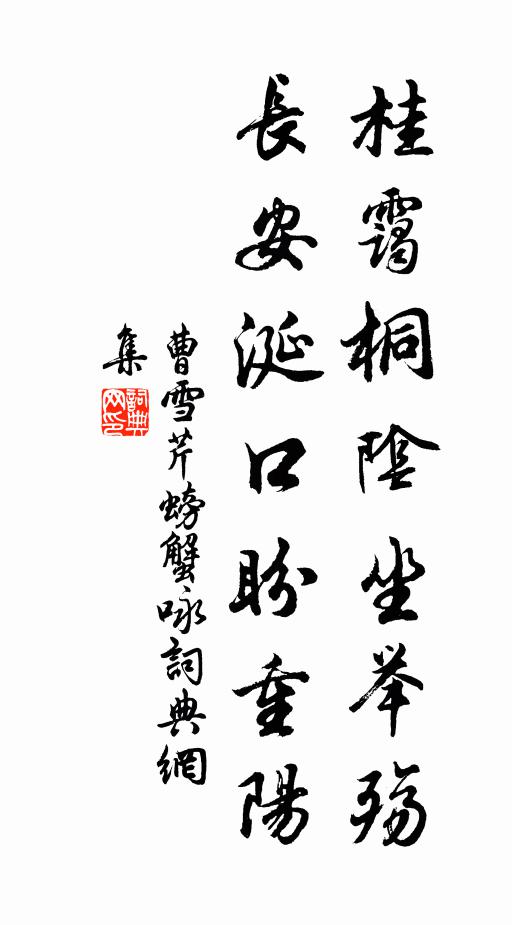 桂靄桐陰坐举殤
長安涎口盼重陽
曹雪芹螃蟹咏詞典網
集
詞典
网印